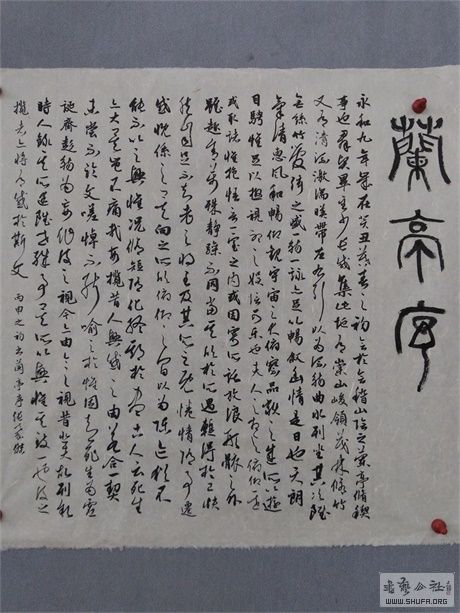 蘭亭序
永和九年歲在癸丑暮春之初會於會稽山陰之蘭亭脩禊
事也群賢畢至少長咸集此地有崇山峻領茂林修竹
又有清流激湍暎帶左右引以為流觴曲水列坐其次雖
無絲竹管弦之盛一觴一詠亦足以暢敘幽情是日也天朗
氣清惠風和暢仰觀宇宙之大俯察品類之盛所以遊
目騁懷足以極視聽之娛信可樂也夫人之相與俯仰一世
或取諸懷抱悟言一室之內或因寄所託放浪形骸之外
雖趣舍萬殊靜躁不同當其欣於所遇暫得於己快
然自足不知老之將至及其所之既惓情隨事遷
感慨係之矣向之所欣俛仰之間以為陳迹猶不
能不以之興懷況脩短隨化終期於盡古人云死生
亦大矣豈不痛哉每攬昔人興感之由若合一契
未嘗不臨文嗟悼不能喻之於懷固知一死生為虛
誕齊彭殤為妄作後之視今亦由今之視昔悲夫故列敘
時人錄其所述雖世殊事異所以興懷其致一也後之
攬者亦將有感於斯文 丙申之初書蘭亭序
書藝公社
WWW.SHUFA.ORG